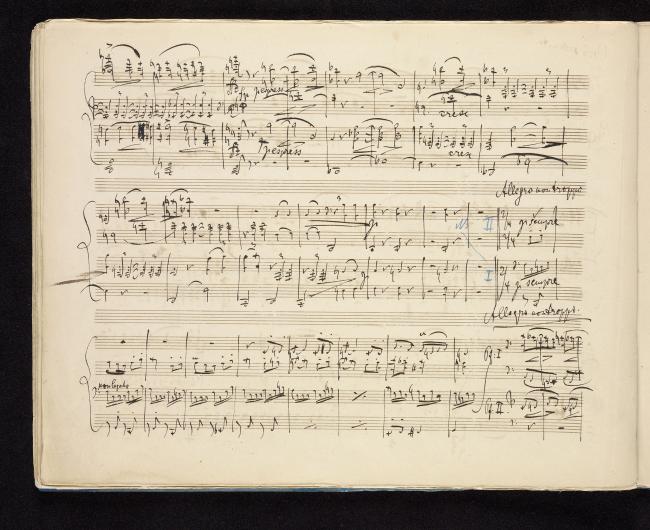 p espress
cresc
p espress
cresc
Allegro non troppo
II
2/4 p sempre
I
2/4 p sempre
Allegro non troppo.
Pf: I
non legato
Pf. II